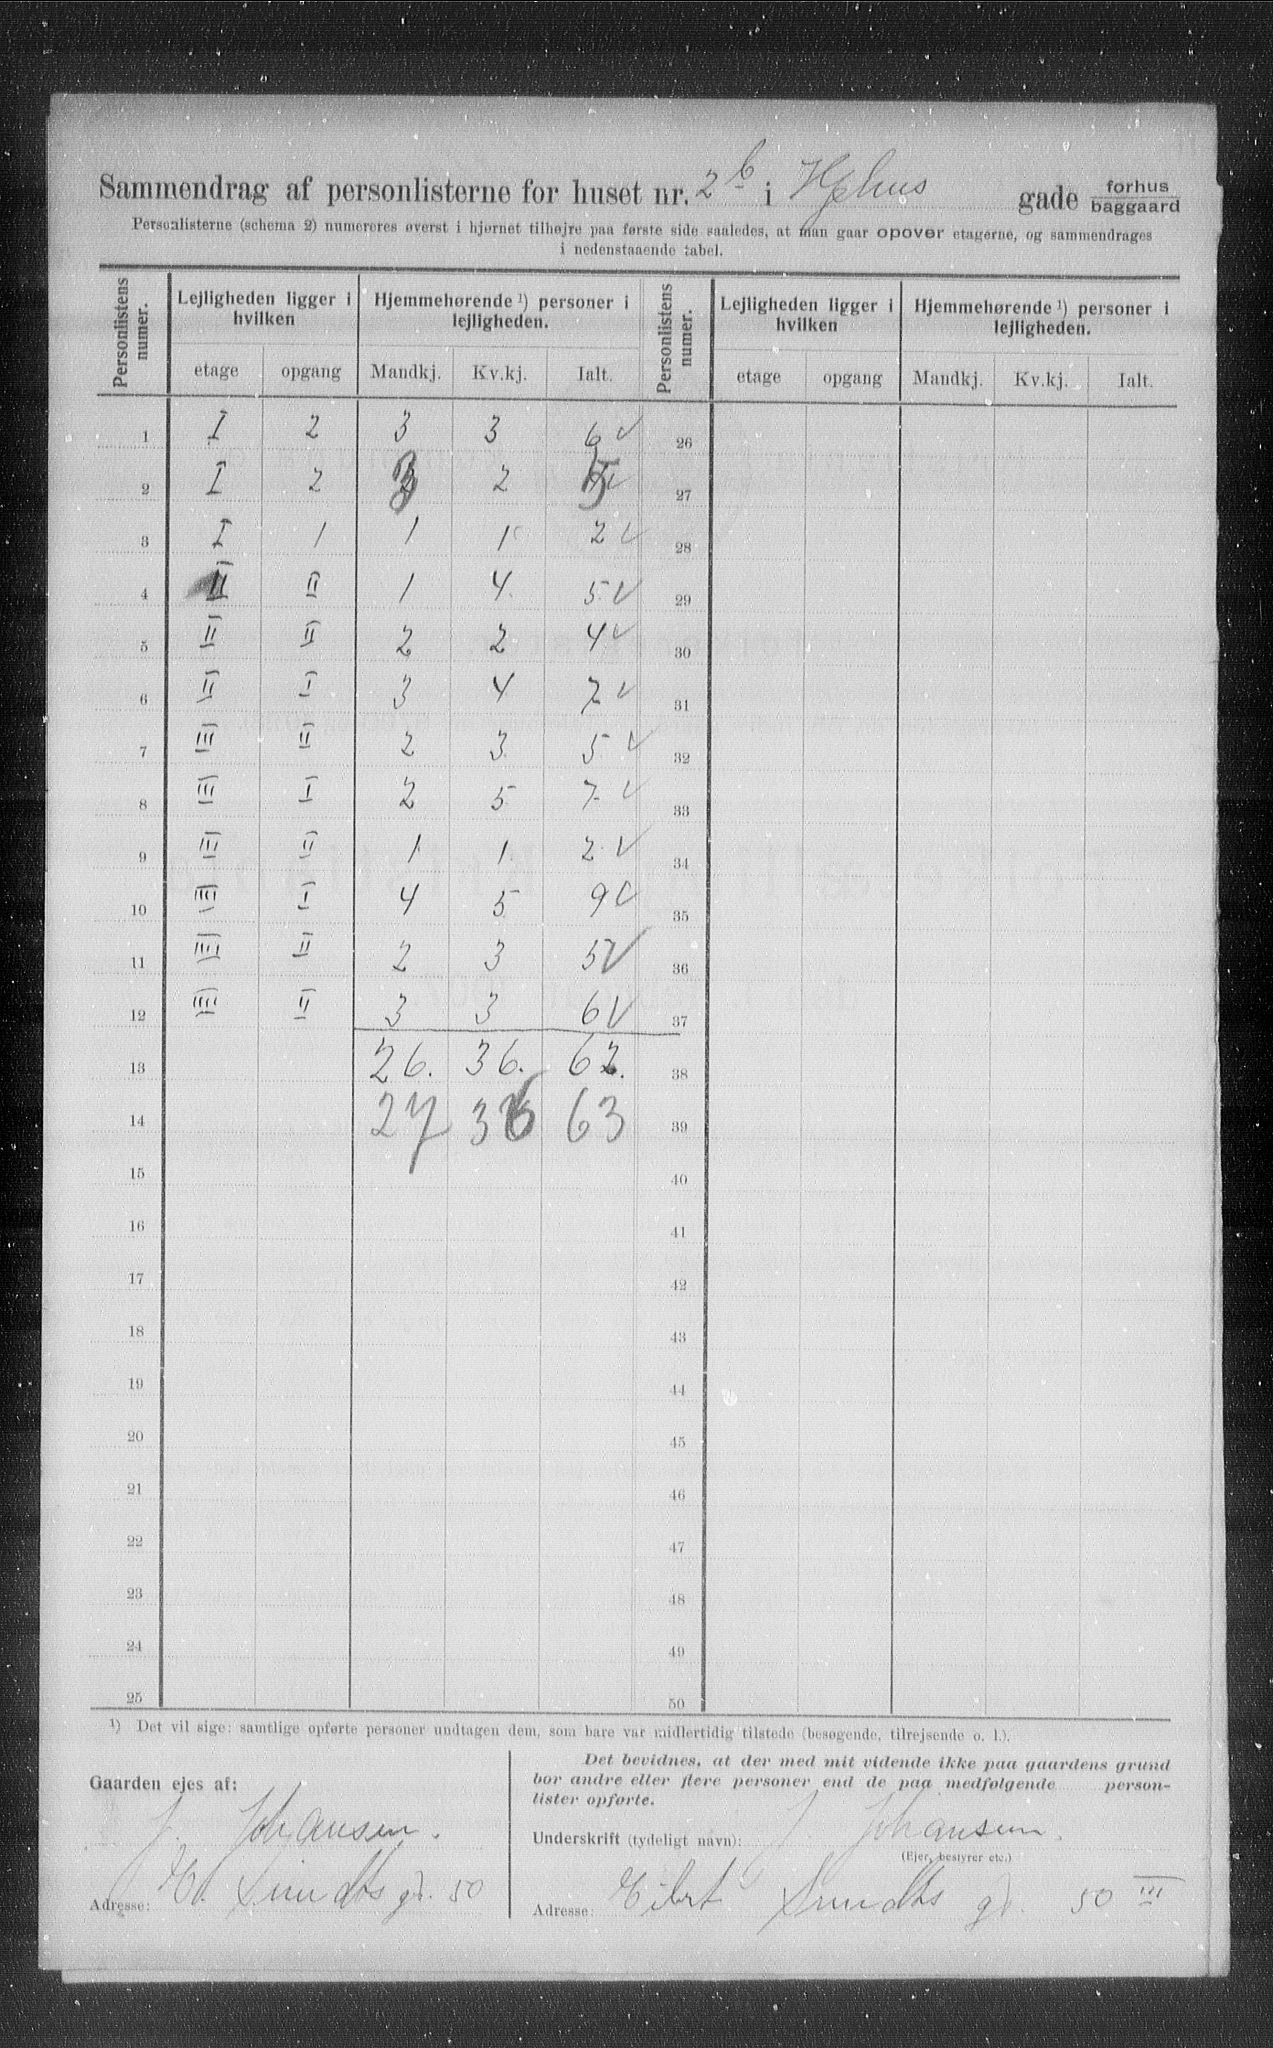 Sammendrag af personlisterne for huset nr. 2 b i Hjelms gade forhus baggaard
Personlisterne (schema 2) numereres øverst i hjørnet tilhøjre paa første side saaledes, at man gaar opover etagerne, og sammendrages
i nedenstaaende tabel.
Personlistens numer.
Lejligheden ligger i hvilken
Hjemmehørende ¹) personer i lejligheden.
Personlistens numer.
Lejligheden ligger i hvilken
Hjemmehørende ¹) personer i lejligheden.
etage opgang Mandkj. Kv.kj. Ialt. etage opgang Mandkj. Kv.kj. Ialt.
1 I 2 3 3 6 √ 26
2 I 2 3 2 5 √ 27
3 I 1 1 1 2 √ 28
4 II II 1 4 5 √ 29
5 II II 2 2 4 √ 30
6 II I 3 4 7 √ 31
7 III II 2 3 5 √ 32
8 III I 2 5 7 √ 33
9 III II 1 1 2 √ 34
10 IIII I 4 5 9 √ 35
11 IIII II 2 3 5 √ 36
12 IIII II 3 3 6 √ 37
13 26. 36. 62. 38
14 27 36 63 39
15 40
16 41
17 42
18 43
19 44
20 45
21 46
22 47
23 48
24 49
25 50
¹) Det vil sige: samtlige opførte personer undtagen dem, som bare var midlertidig tilstede (besøgende, tilrejsende o. l.).
Gaarden ejes af:
J. Johansen.
Adresse: Eil. Sundts gd. 50
Det bevidnes, at der med mit vidende ikke paa gaardens grund
bor andre eller flere personer end de paa medfølgende person-
lister opførte.
Underskrift (tydeligt navn): J. Johansen.
(Ejer, bestyrer etc.)
Adresse: Eilert Sundts gd. 50 III